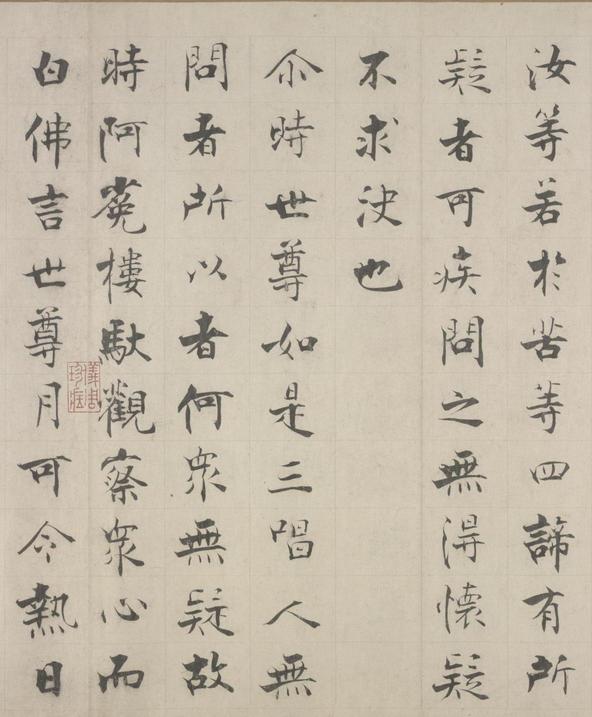 汝等若於苦等四諦有所
疑者可疾問之無得懷疑
不求決也
尒時世尊如是三唱人無
問者所以者何衆無疑故
時阿㝹樓馱觀察衆心而
白佛言世尊月可令熱日